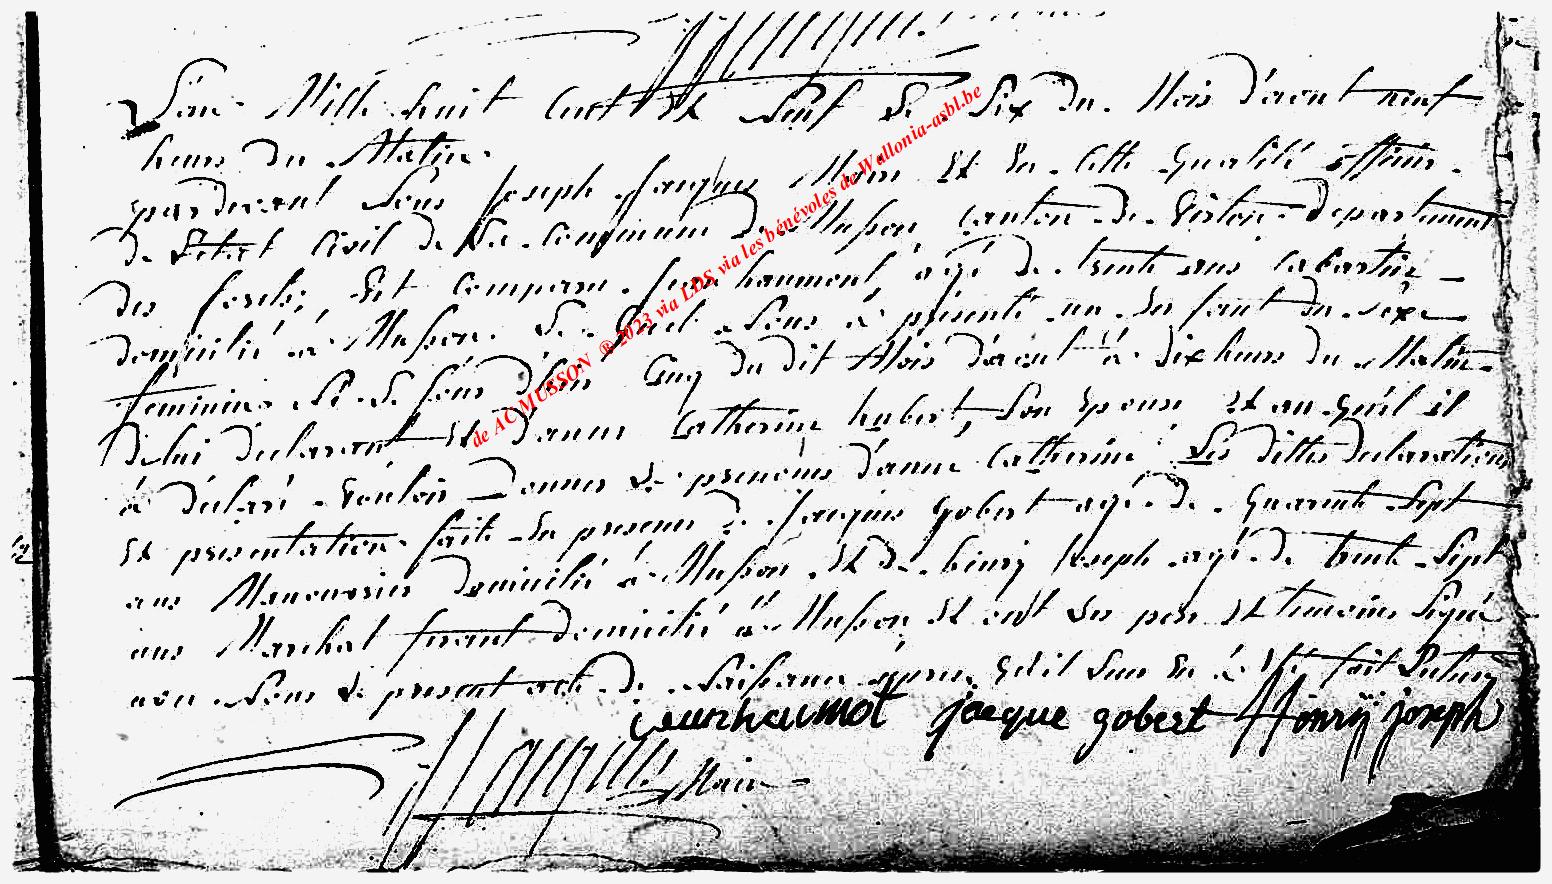 L'an Mille huit Cent et Neuf Le Six du Mois d'aout neuf
heurs du Matin
pardevant Nous Joseph Jacques Maire Et En Cette qualité officier
de L'etat Civil de La Commune de Musson Canton de Virton departement
des forets, Est Comparu jean haumont, agé de trente ans Cabartier
domicilié à Musson Le quel Nous à présenté un Enfant du sexe
feminine Né Le jour d'hier Cinq du dit Mois d'aout à dix heurs du Matin
de lui déclarant Et d'anne Catherine hubert, Son Epouse Et au quel il
à déclaré Vouloir donner Le prenoms d'anne Catherine Les dittes declarations
Et présentation faite En presence de Jacques Gobert agé de quarante Sept
ans Manouvrier domicilié à Musson Et de henry Joseph agé de trente Sept
ans Marchal ferant domicilié à Musson Et ont Les per Et temoins Signé
avec Nous Le present acte de Naissance apres qu'il Leur En à Eté fait Lecture
jean haumot jacque gobert Henrÿ joseph
Jacques Maire
de AC MUSSON ® 2023 via LDS via les bénévoles de Wallonia-asbl.be